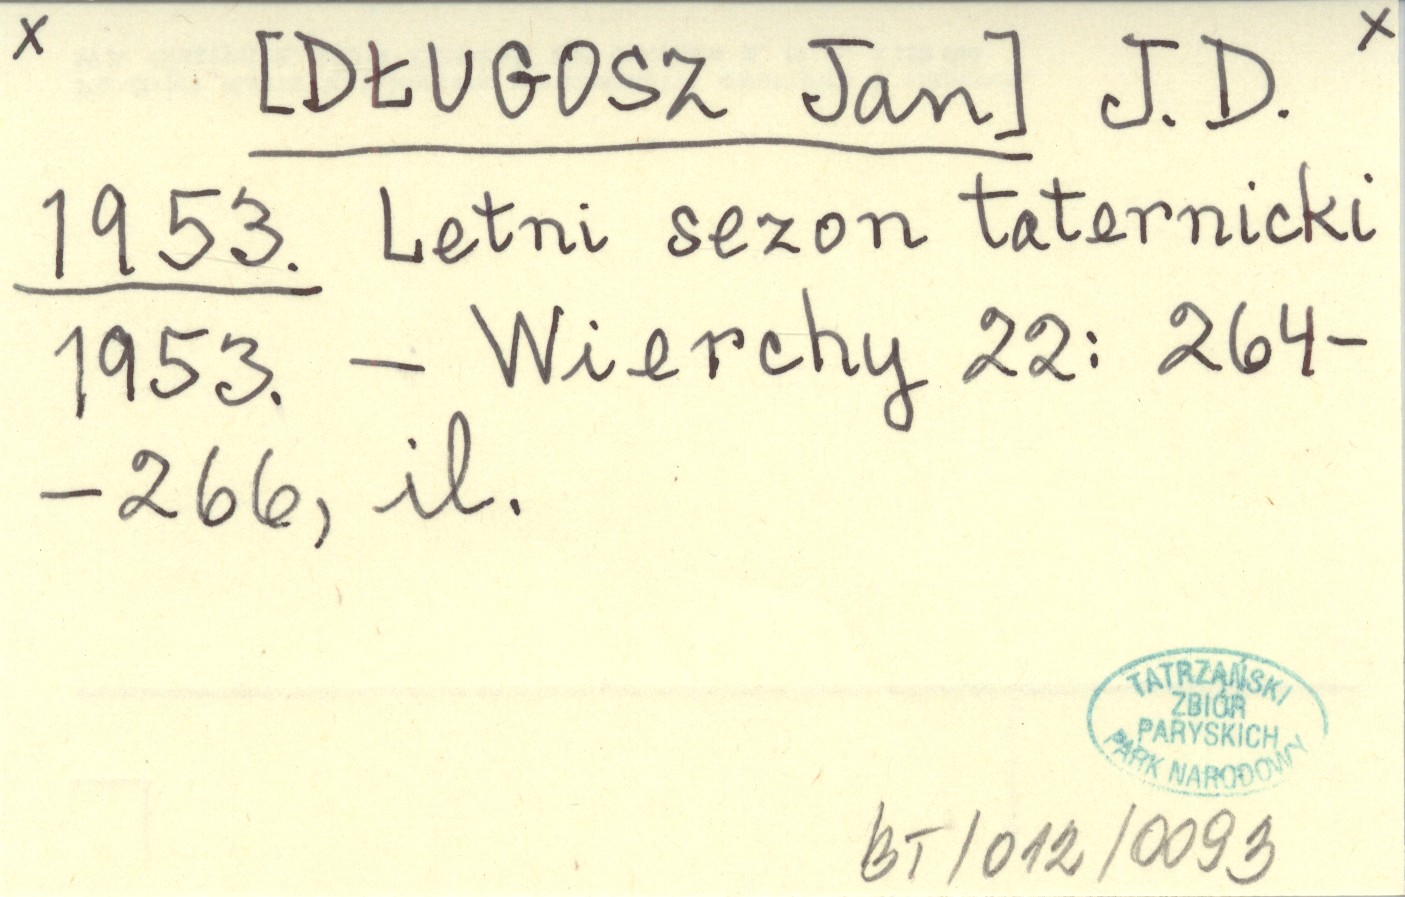 x [DŁUGOSZ Jan] J.D. x
1953. Letni sezon taternicki
1953. – Wierchy 22: 264-
-266, il.
TATRZAŃSKI
ZBIÓR
PARYSKICH
PARK NARODOWY
BT/012/0093